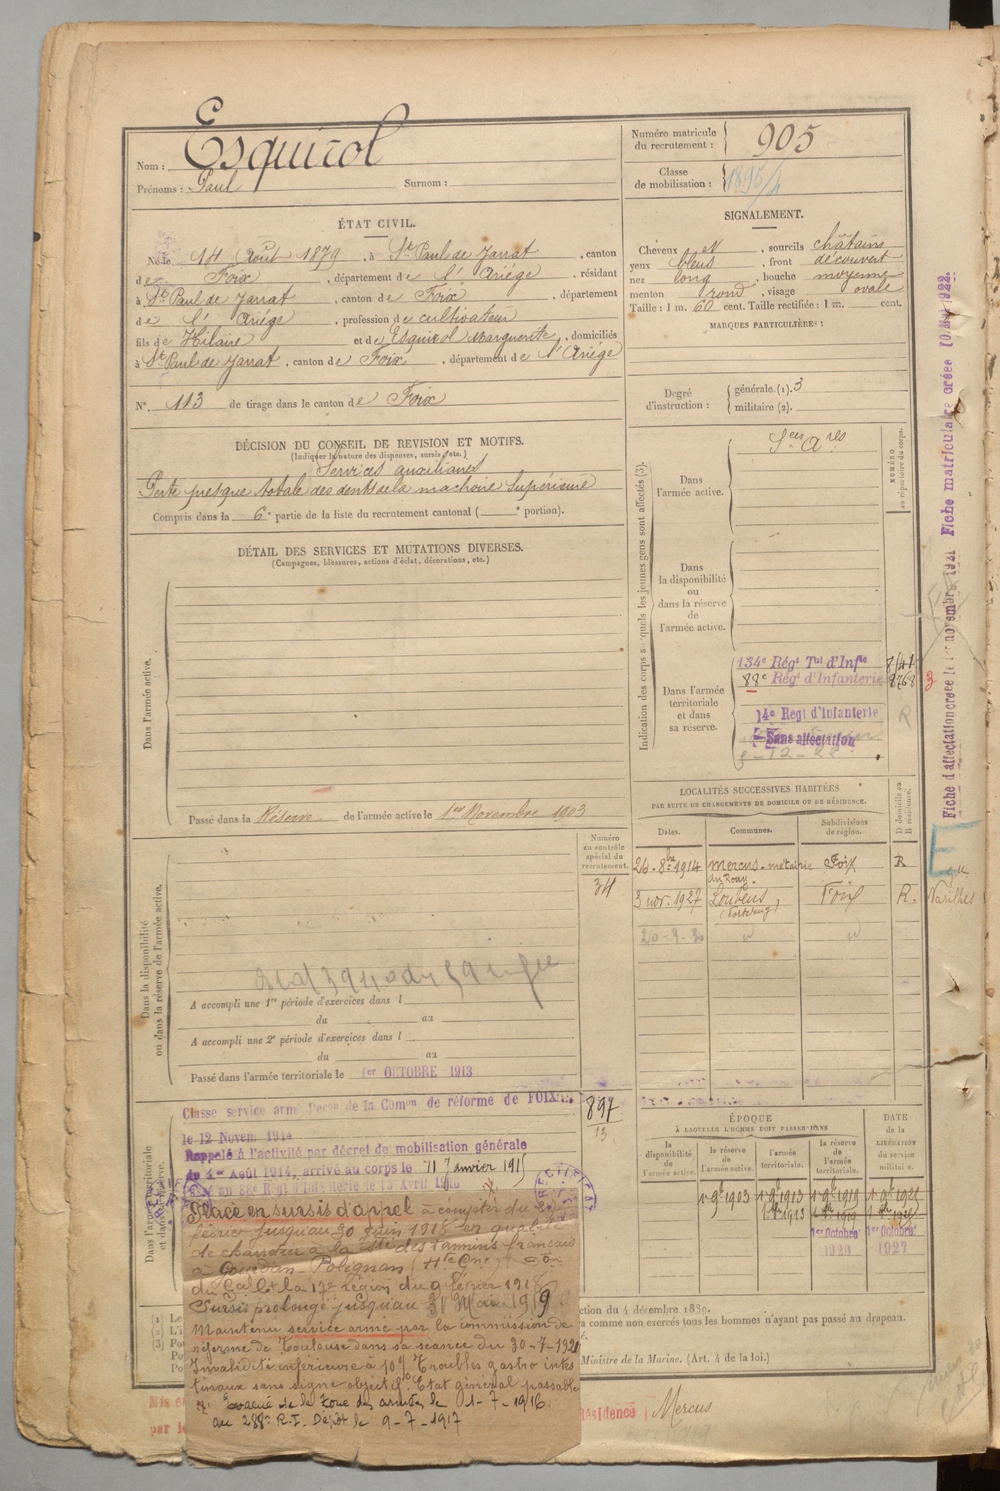 Nom : Esquirol
Prénoms : Paul Surnom :
Numéro matricule du recrutement : 905
Classe de mobilisation : 1895/4
ÉTAT CIVIL.
Né le 14 Août 1879, à St Paul de Jarrat, canton
de Foix, département de l'Ariége, résidant
à St Paul de Jarrat, canton de Foix, département
de l'Ariége, profession de cultivateur
fils de Hilaire et de Esquirol Marguerite, domiciliés
à St Paul de Jarrat, canton de Foix, département de l'Ariége
N° 113 de tirage dans le canton de Foix
SIGNALEMENT.
Cheveux et, sourcils châtains
yeux bleus, front découvert
nez long, bouche moyenne
menton rond, visage ovale
Taille : 1 m. 60 cent. Taille rectifiée : 1 m. cent.
MARQUES PARTICULIÈRES :
Degré d'instruction : générale (1). 3
militaire (2).
DÉCISION DU CONSEIL DE REVISION ET MOTIFS.
(Indiquer la nature des dispenses, sursis, etc.)
Services auxiliaires
Perte presque totale des dents de la machoire Supérieure
Compris dans la 6e partie de la liste du recrutement cantonal ( e portion).
DÉTAIL DES SERVICES ET MUTATIONS DIVERSES.
(Campagnes, blessures, actions d'éclat, décorations, etc.)
Dans l'armée active.
Passé dans la Réserve de l'armée active le 1er Novembre 1903
Indication des corps auxquels les jeunes gens sont affectés (3).
NUMÉRO au répertoire du corps.
Dans l'armée active.
Sces Ares
Dans la disponibilité ou dans la réserve de l'armée active.
Dans l'armée territoriale et dans sa réserve.
134e Régt Tal d'Infie
88e Régt d'Infanterie 8768
14e Regt d'Infanterie
Sans affectation
R
Fiche d'affectation créée le 1er novembre 1921 Fiche matriculaire créée 10 Mai 1922.
LOCALITÉS SUCCESSIVES HABITÉES
PAR SUITE DE CHANGEMENTS DE DOMICILE OU DE RÉSIDENCE.
Dates. Communes. Subdivisions de région. D domicile ou R résidence.
26 8bre 1914 Mercus - métairie Foix R
3 nov. 1927 Loubens Foix R.
20-3-30 " "
Varilhes
Dans la disponibilité ou dans la réserve de l'armée active.
Numéro au contrôle spécial du recrutement.
34
A accompli une 1re période d'exercices dans l
du au
A accompli une 2e période d'exercices dans l
du au
Passé dans l'armée territoriale le 1er OCTOBRE 1913
Dans l'armée territoriale et dans
Classé service armé Décon de la Comon de réforme de FOIX
le 12 Novem 1914
Rappelé à l'activité par décret de mobilisation générale
du 1er Août 1914, arrivé au corps le 11 Janvier 1915
Passé au 88e Régt d'Infanterie le 13 Avril 1916
897
13
Placé en sursis d'appel à compter du
février jusqu'au 30 juin 1918 en qualité
de à la Sté des tamins français
à Gourdan-Polignan (Hte Gne)
du Gal Ct la 17e région du 9 février 1918
Sursis prolongé jusqu'au 31 Mai 1919
Maintenu service armé par la commission de
réforme de Toulouse dans sa séance du 30-7-1920
Invalidité inférieure à 10% Troubles gastro intes
tinaux sans signe objectif. Etat général passable
Evacué de la zone des armées le 1-7-1916
au 288e R.I. Dépôt le 9-7-1917
RECTIFIÉ
ÉPOQUE
À LAQUELLE L'HOMME DOIT PASSER DANS
DATE de la LIBÉRATION du service militaire.
la disponibilité de l'armée active.
la réserve de l'armée active.
l'armée territoriale.
la réserve de l'armée territoriale.
1-9bre 1903 1-9bre 1913 1-9bre 1919 1-9bre 1925
1er Octobre 1920 1er Octobre 1927
ction du 4 décembre 1889.
ra comme non exercés tous les hommes n'ayant pas passé au drapeau.
Ministre de la Marine. (Art. 4 de la loi.)
Résidence Mercus